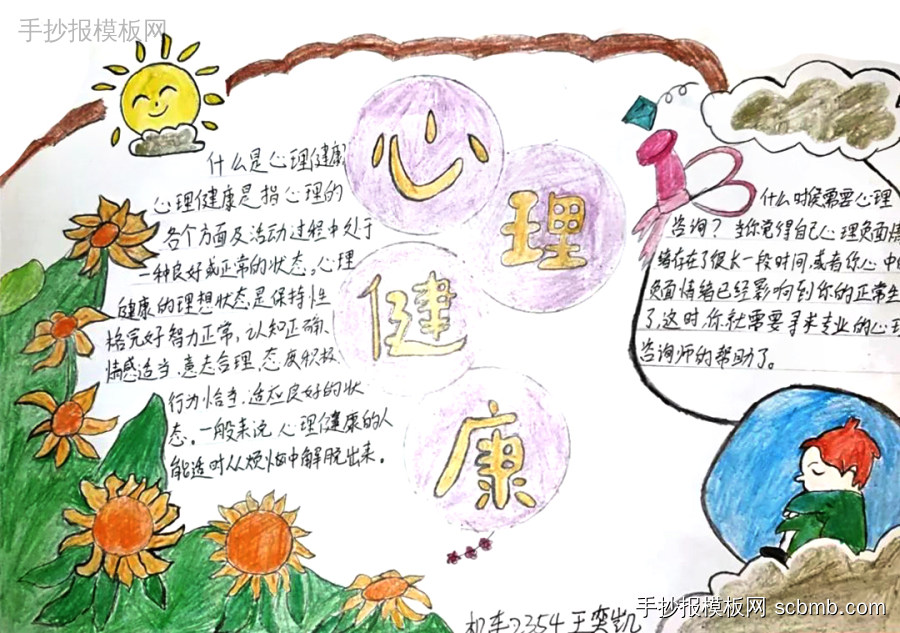 手抄报模板网
心理健康
什么是心理健康
心理健康是指心理的
各个方面及活动过程中处于
一种良好或正常的状态。心理
健康的理想状态是保持性
格完好智力正常，认知正确，
情感适当，意志合理，态度积极
行为恰当，适应良好的状
态。一般来说心理健康的人
能适时从烦恼中解脱出来。
什么时候需要心理
咨询？当你觉得自己心理负面情
绪存在了很长一段时间，或者你心中的
负面情绪已经影响到你的正常生
了，这时，你就需要寻求专业的心理
咨询师的帮助了。
机车2354王奕凯
手抄报模板网 scbmb.com